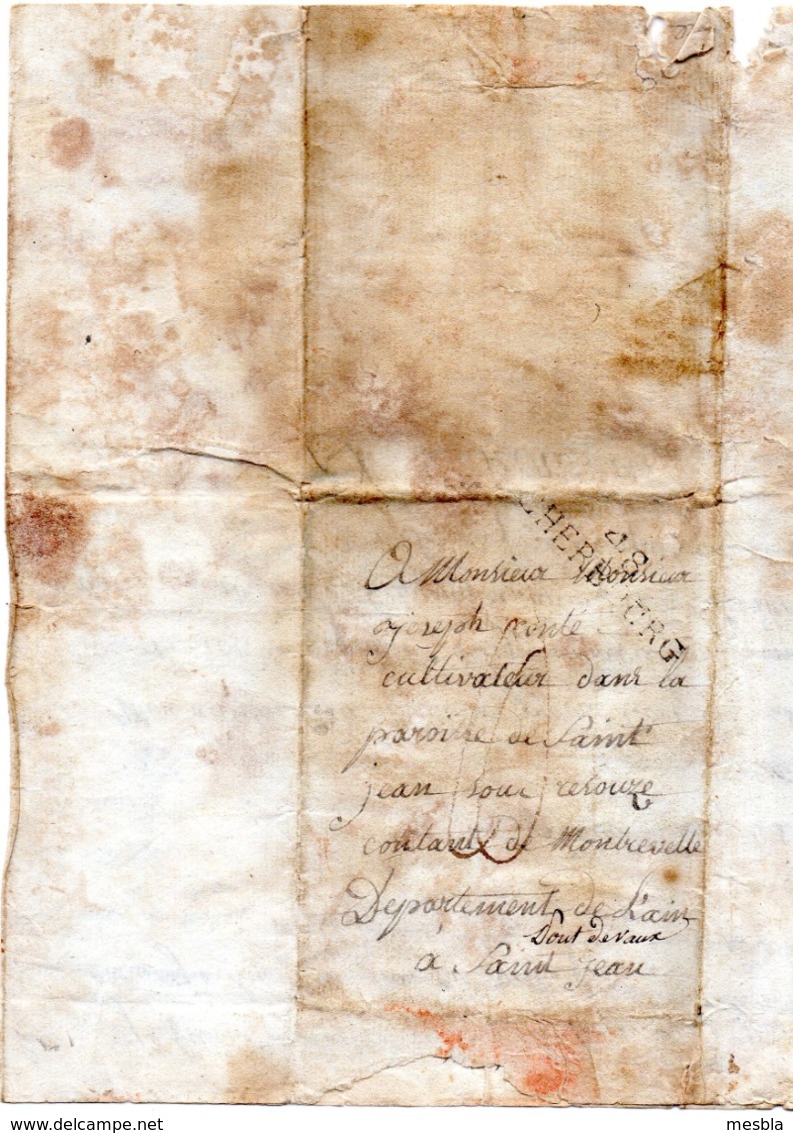 48
CHERBOURG
A Monsieur Monsieur
joseph conté
cultivateur dans la
paroisse de Saint
jean sour resouze
contant de Montrevelle
Departement de L'ain
Pont de vaux
à Saint jean
mesbla